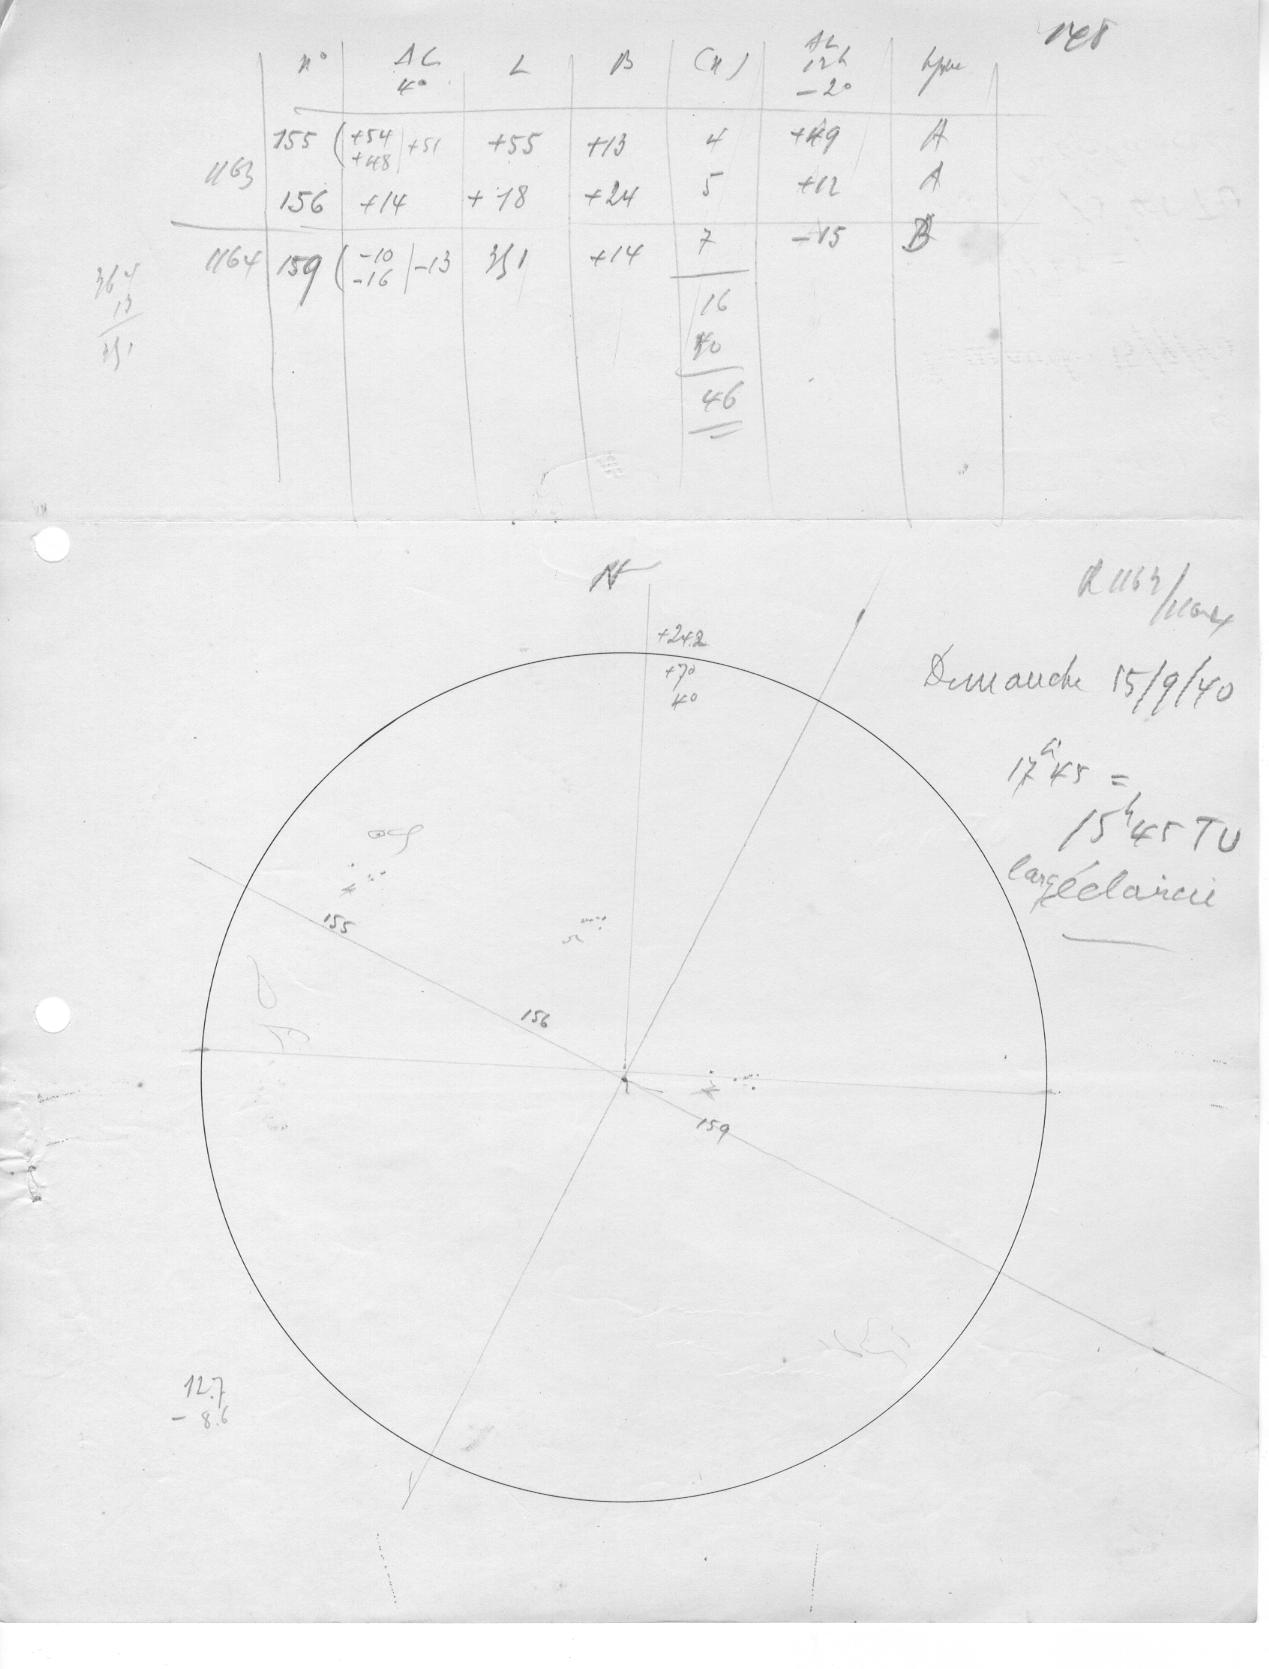 148
n° AL 4° L B (n) AL 12h -2° type
1163 155 (+54 +48 | +51 +55 +13 4 +49 A
156 +14 +18 +24 5 +12 A
1164 159 (-10 -16 | -13 351 +14 7 -15 B
364
13
351
16
30
46
N
R 1163/1164
+24.2
+7°
4°
Dimanche 15/9/40
17h45 =
15h45 TU
large éclaircie
155
156
159
12.7
- 8.6